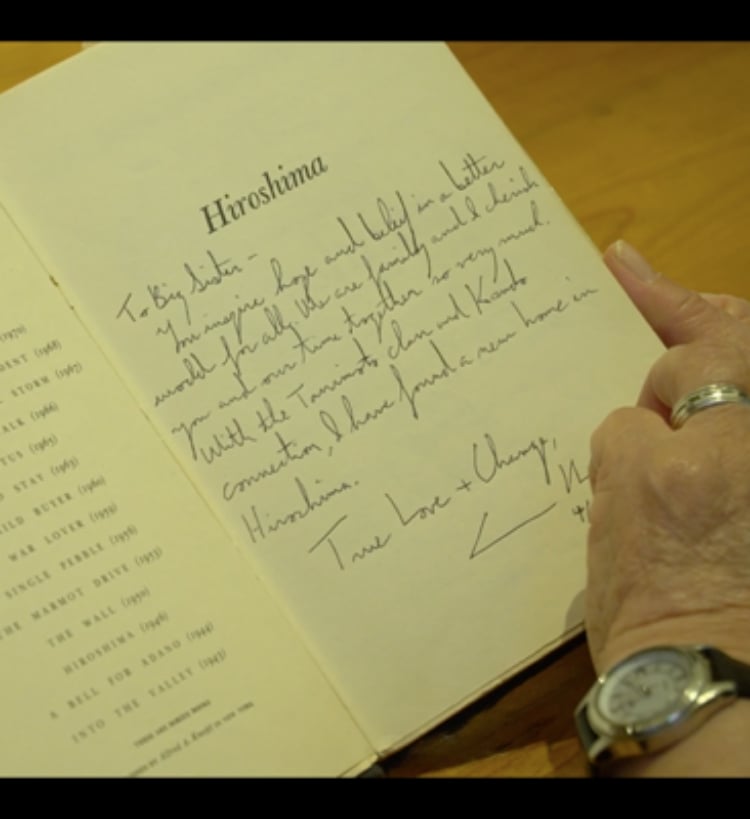 (1970)
DENT (1968)
STORM (1967)
ALK (1966)
TUS (1965)
STAY (1963)
ILD BUYER (1960)
WAR LOVER (1959)
SINGLE PEBBLE (1956)
THE MARMOT DRIVE (1953)
THE WALL (1950)
HIROSHIMA (1946)
A BELL FOR ADANO (1944)
INTO THE VALLEY (1943)
THESE ARE BORZOI BOOKS
BY Alfred A. Knopf IN NEW YORK
Hiroshima
To Big Sister –
You inspire hope and belief in a better
world for all. We are family and I cherish
you and our time together so very much.
With the Tanimoto clan and Kondo
connection, I have found a new home in
Hiroshima.
True Love + Change,